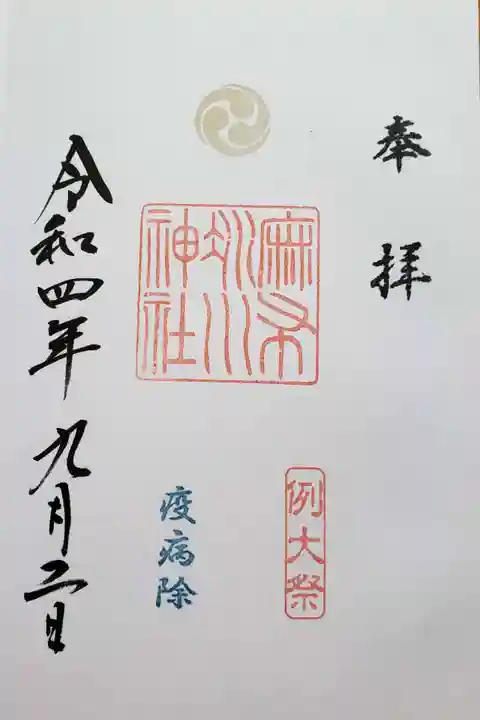 奉拝
麻布氷川神社
例大祭
疫病除
令和四年九月二日